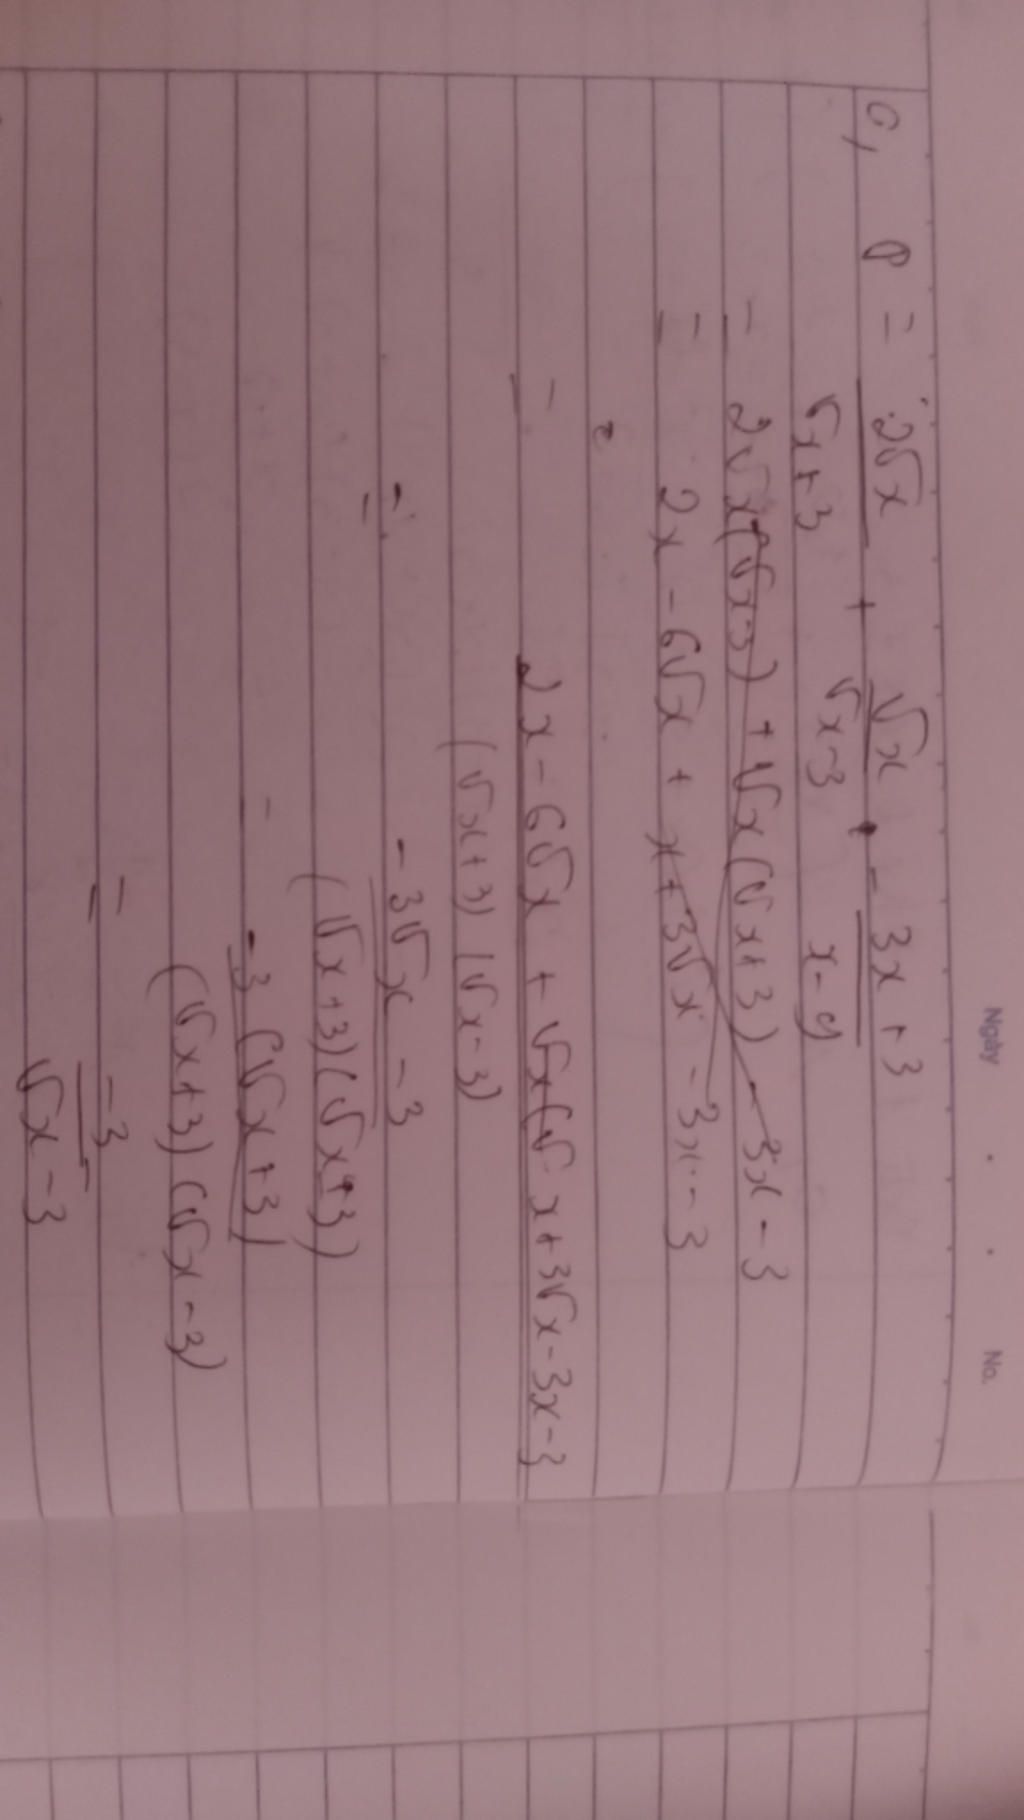 Ngày . . No.
c, P = 2√x / √x+3 + √x / √x-3 - 3x+3 / x-9
= 2√x(√x-3) + √x(√x+3) - 3x-3
= 2x - 6√x + x+3√x - 3x-3
= 2x - 6√x + √x(√x+3√x-3x-3
(√x+3)(√x-3)
= -3√x - 3
(√x+3)(√x+3)
= -3(√x+3)
(√x+3)(√x-3)
= -3
√x-3